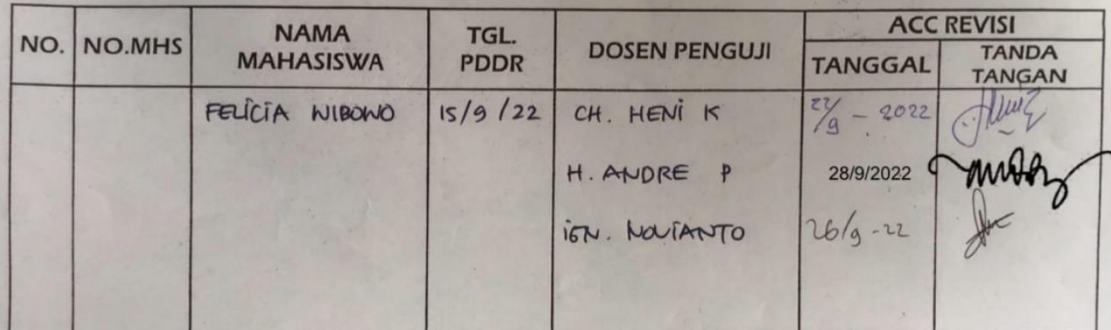 NO. NO.MHS NAMA MAHASISWA TGL. PDDR DOSEN PENGUJI ACC REVISI
TANGGAL TANDA TANGAN
FELICIA WIBOWO 15/9/22 CH. HENI K 27/9 - 2022
H. ANDRE P 28/9/2022
IGN. NOVIANTO 26/9-22